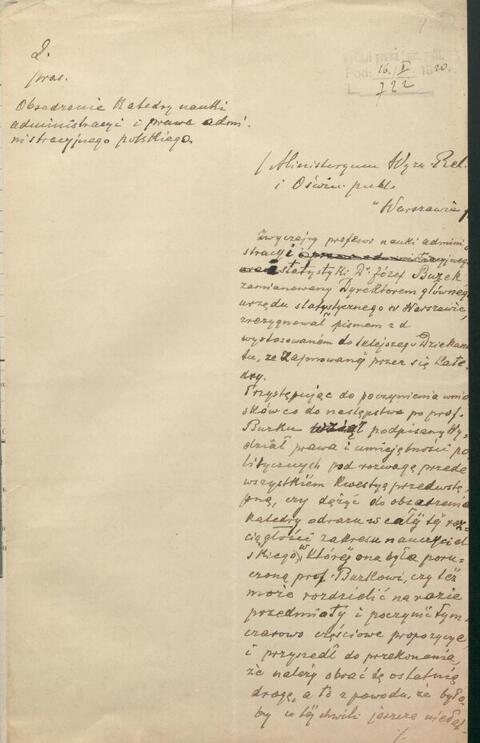 2.
pras.
Obsadzenie Katedry nauki
administracyi i prawa admi-
nistracyjnego polskiego.
Pod: 16. I 1920.
L 722
Ministeryum Wyzn. Rel.
i Oświec. publ.
w Warszawie
Zwyczajny profesor nauki admini
stracyi
statystyki Dr. Józef Buzek
zamianowany Dyrektorem głównego
urzędu statystycznego w Warszawie,
zrezygnował pismem z d
wystosowanem do tutejszego Dziekana
tu, ze zajmowanej przez się Kate
dry.
Przystępując do poczynienia wnio
sków co do następstwa po prof.
Buzku wziął podpisany Wy
dział prawa i umiejętności po
litycznych pod rozwagę przede
wszystkiem kwestyę przedwstę
pną, czy dążyć do obsadzenia
Katedry odrazu w całej tej roz
ciągłości zakresu nauczyciel
skiego, w której ona była poru
czoną prof. Buzkowi, czy też
może rozdzielić na razie
przedmioty i poczynić tym
czasowo częściowe propozycye,
i przyszedł do przekonania,
że należy obrać tę ostatnią
drogę, a to z powodu, że było
by w tej chwili jeszcze
./.